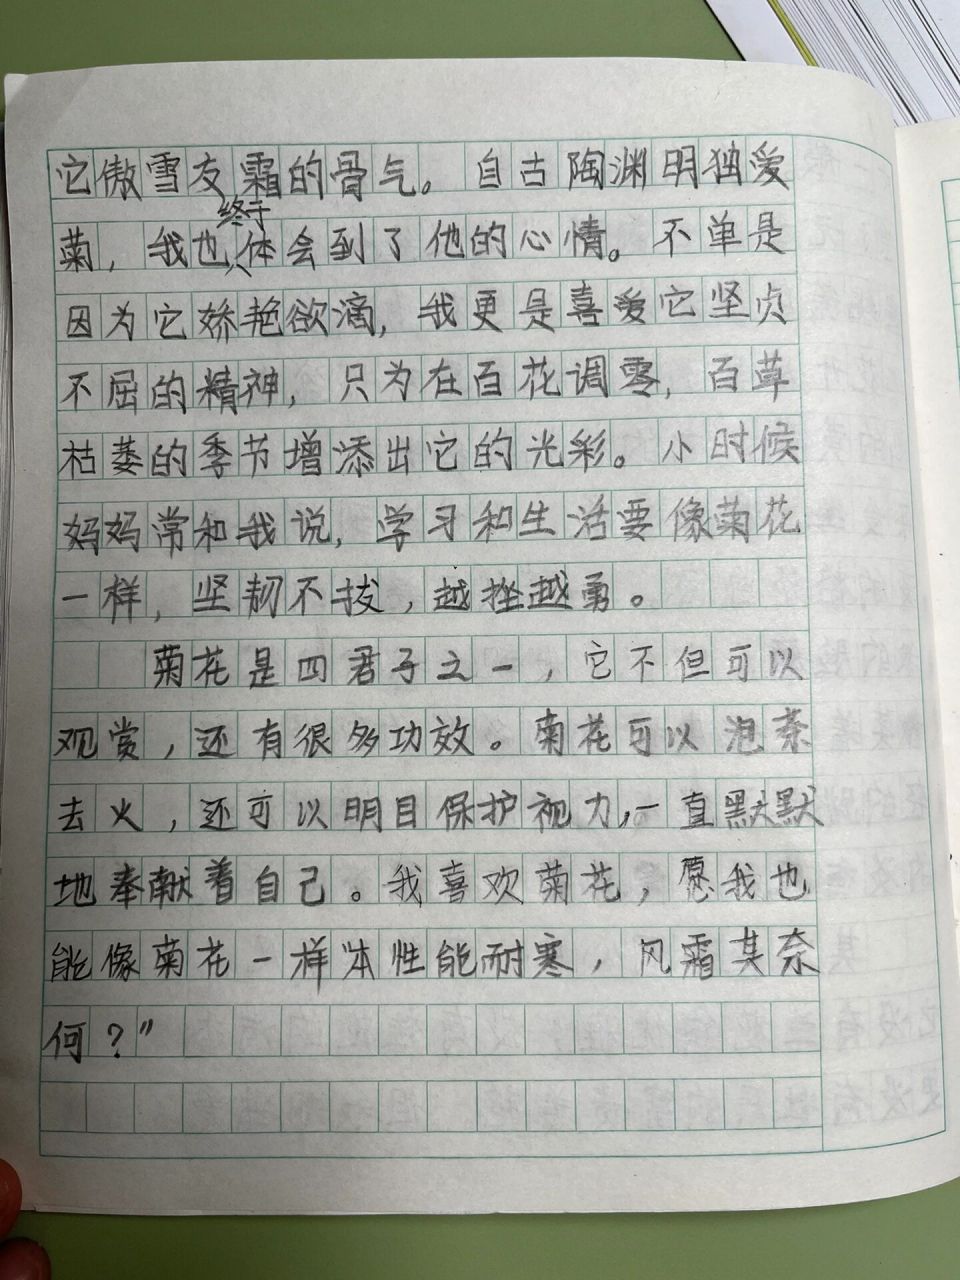 它傲雪友霜的骨气。自古陶渊明独爱
菊，我也终于体会到了他的心情。不单是
因为它娇艳欲滴，我更是喜爱它坚贞
不屈的精神，只为在百花调零，百草
枯萎的季节增添出它的光彩。小时候
妈妈常和我说，学习和生活要像菊花
一样，坚韧不拔，越挫越勇。
菊花是四君子之一，它不但可以
观赏，还有很多功效。菊花可以泡茶
去火，还可以明目保护视力，一直默默
地奉献着自己。我喜欢菊花，愿我也
能像菊花一样本性能耐寒，风霜其奈
何？”